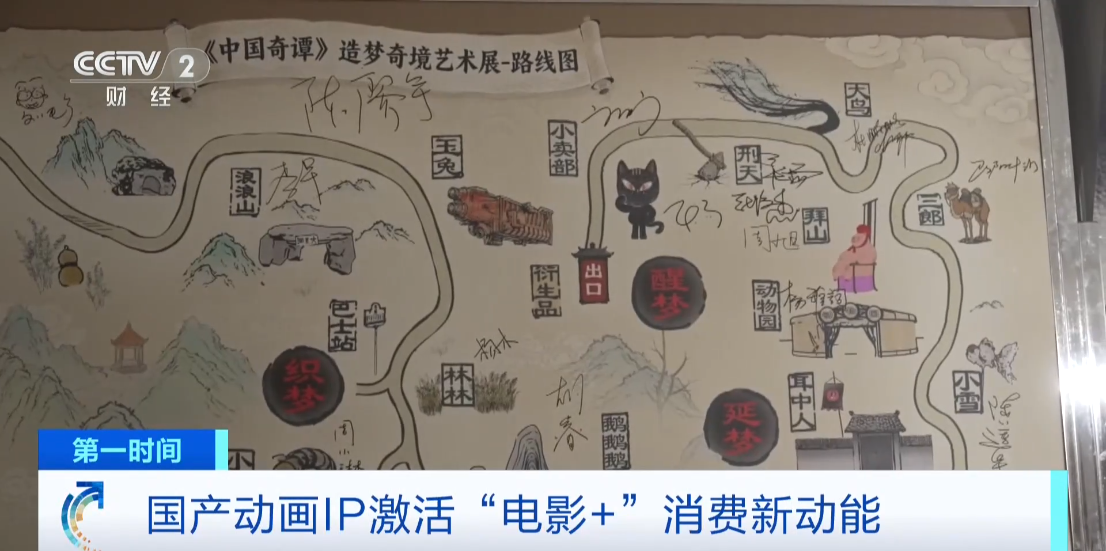 CCTV 2
财经
《中国奇谭》造梦奇境艺术展-路线图
大鸟
玉兔
小卖部
刑天
浪浪山
三郎
拜山
衍生品
出口
醒梦
动物园
周旭
巴士站
织梦
林林
小雪
耳中人
胡春
鹅鹅鹅
延梦
周小琳
小
第一时间
国产动画IP激活“电影+”消费新动能